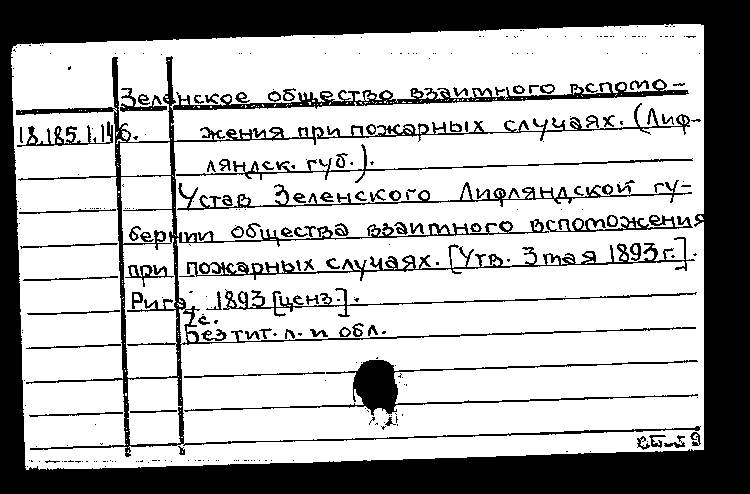 Зеленское общество взаимного вспомо-
18.185.1.146. жения при пожарных случаях. (Лиф-
ляндск. губ.).
Устав Зеленского Лифляндской гу-
бернии общества взаимного вспоможения
при пожарных случаях. [Утв. 3 мая 1893 г.].
Рига, 1893 [ценз.].
7с.
Без тит. л. и обл.